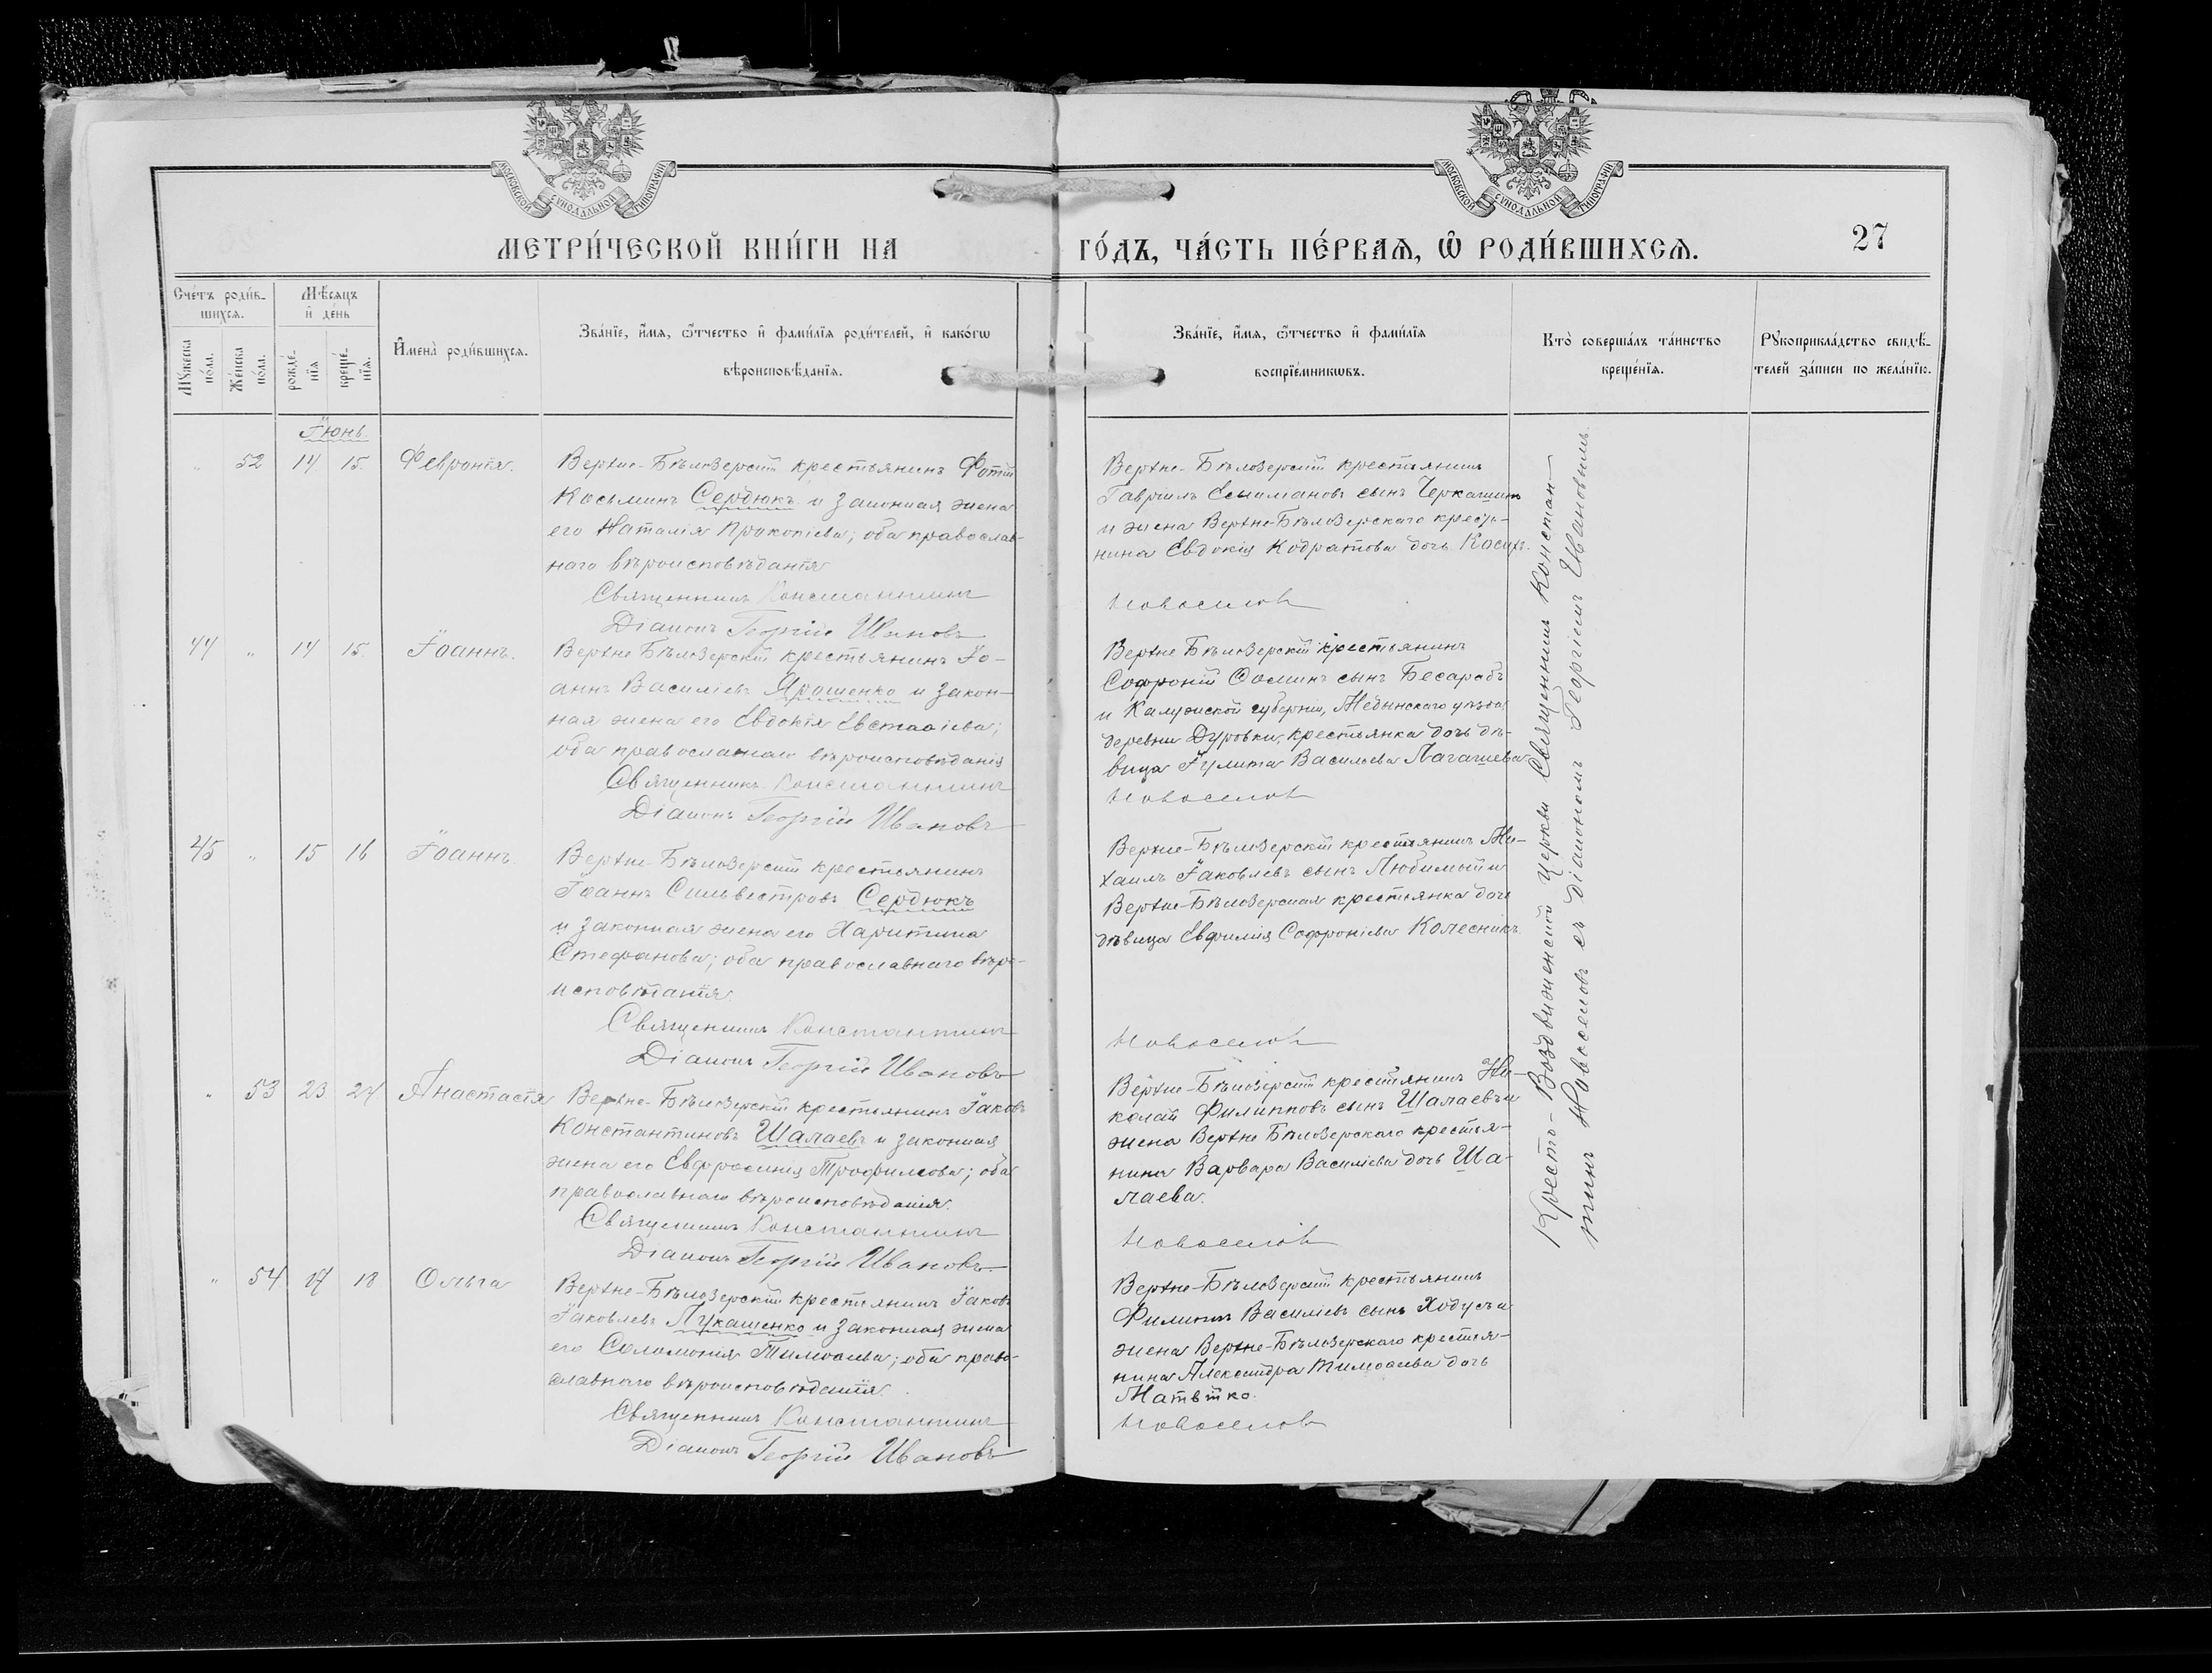 МОСКОВСКОЙ СѴНОДАЛЬНОЙ ТИПОГРАФІИ
МОСКОВСКОЙ СѴНОДАЛЬНОЙ ТИПОГРАФІИ
МЕТРИ́ЧЕСКОЙ КНИ́ГИ НА
ГО́ДЪ, ЧА́СТЬ ПЕ́РВАѦ, Ѿ РОДИ́ВШИХСѦ.
27
Сче́тъ роди́в-
шихсѧ.
Мѣ́сѧцъ
и҆ де́нь
Мꙋ́жеска
по́ла.
Же́нска
по́ла.
рожде́-
нїѧ
креще́-
нїѧ.
И҆мена̀ роди́вшихсѧ.
Зва́нїе, и҆́мѧ, ѻ҆́тчество и҆ фами́лїѧ роди́телей, и҆ како́гѡ
вѣроисповѣ́данїѧ.
Зва́нїе, и҆́мѧ, ѻ҆́тчество и҆ фами́лїѧ
воспрїе́мникѡвъ.
Кто̀ соверша́лъ та́инство
креще́нїѧ.
Рꙋкоприкла́дство свидѣ́-
телей за́писи по жела́нїю.
Іюнь.
" 52 14 15. Февронія.
Верхне-Бѣлозерскій крестьянинъ Фотій
Косьминъ Сердюкъ и законная жена
его Наталія Прокопіева; оба православ-
наго вѣроисповѣданія
Священникъ Константинъ
Діаконъ Георгій Ивановъ
Верхне-Бѣлозерскій крестьянинъ
Гавріилъ сынъ
и жена Верхне-Бѣлозерскаго кресть-
нина Евдокія Кодратова дочь
Новоселовъ
44 " 14 15. Іоаннъ.
Верхне Бѣлозерскій крестьянинъ Іо-
аннъ Василіевъ Ярошенко и закон-
ная жена его Евдокія Евстаѳіева;
оба православнаго вѣроисповѣданія
Священникъ Константинъ
Діаконъ Георгій Ивановъ
Верхне Бѣлозерскій крестьянинъ
Софроній Ѳоминъ сынъ Бесарабъ
и Калужской губерніи, Медынскаго уѣзда
деревни Дуровки, крестьянка дочь дѣ-
вица Іулита Васильева
Новоселовъ
45 " 15 16 Іоаннъ.
Верхне-Бѣлозерскій крестьянинъ
Іоаннъ Сильвестровъ Сердюкъ
и законная жена его Харитина
Стефанова; оба православнаго вѣро-
исповѣданія.
Священникъ Константинъ
Діаконъ Георгій Ивановъ
Верхне-Бѣлозерскій крестьянинъ Ми-
хаилъ Іаковлевъ сынъ Любимый и
Верхне-Бѣлозерская крестьянка дочь
дѣвица Евфимія Софроніева Колесникъ.
Новоселовъ
" 53 23 24 Анастасія
Верхне-Бѣлозерскій крестьянинъ Іаковъ
Константиновъ Шалаевъ и законная
жена его Евфросинія Трофимова; оба
православнаго вѣроисповѣданія.
Священникъ Константинъ
Діаконъ Георгій Ивановъ
Верхне-Бѣлозерскій крестьянинъ Ни-
колай Филипповъ сынъ Шалаевъ и
жена Верхне Бѣлозерскаго крестья-
нина Варвара Василіева дочь Ша-
лаева.
Новоселовъ
" 54 17 18 Ольга
Верхне-Бѣлозерскій крестьянинъ Іаковъ
Іаковлевъ Лукашенко и законная жена
его Соломонія Тимоѳеева; оба право-
славнаго вѣроисповѣданія.
Священникъ Константинъ
Діаконъ Георгій Ивановъ
Верхне-Бѣлозерскій крестьянинъ
Филиппъ Василіевъ сынъ Ходусъ и
жена Верхне-Бѣлозерскаго крестья-
нина Александра Тимоѳеева дочь
Новоселовъ
Кресто-Воздвиженской церкви Священникъ Констан-
тинъ Новоселовъ съ діакономъ Георгіемъ Ивановымъ.